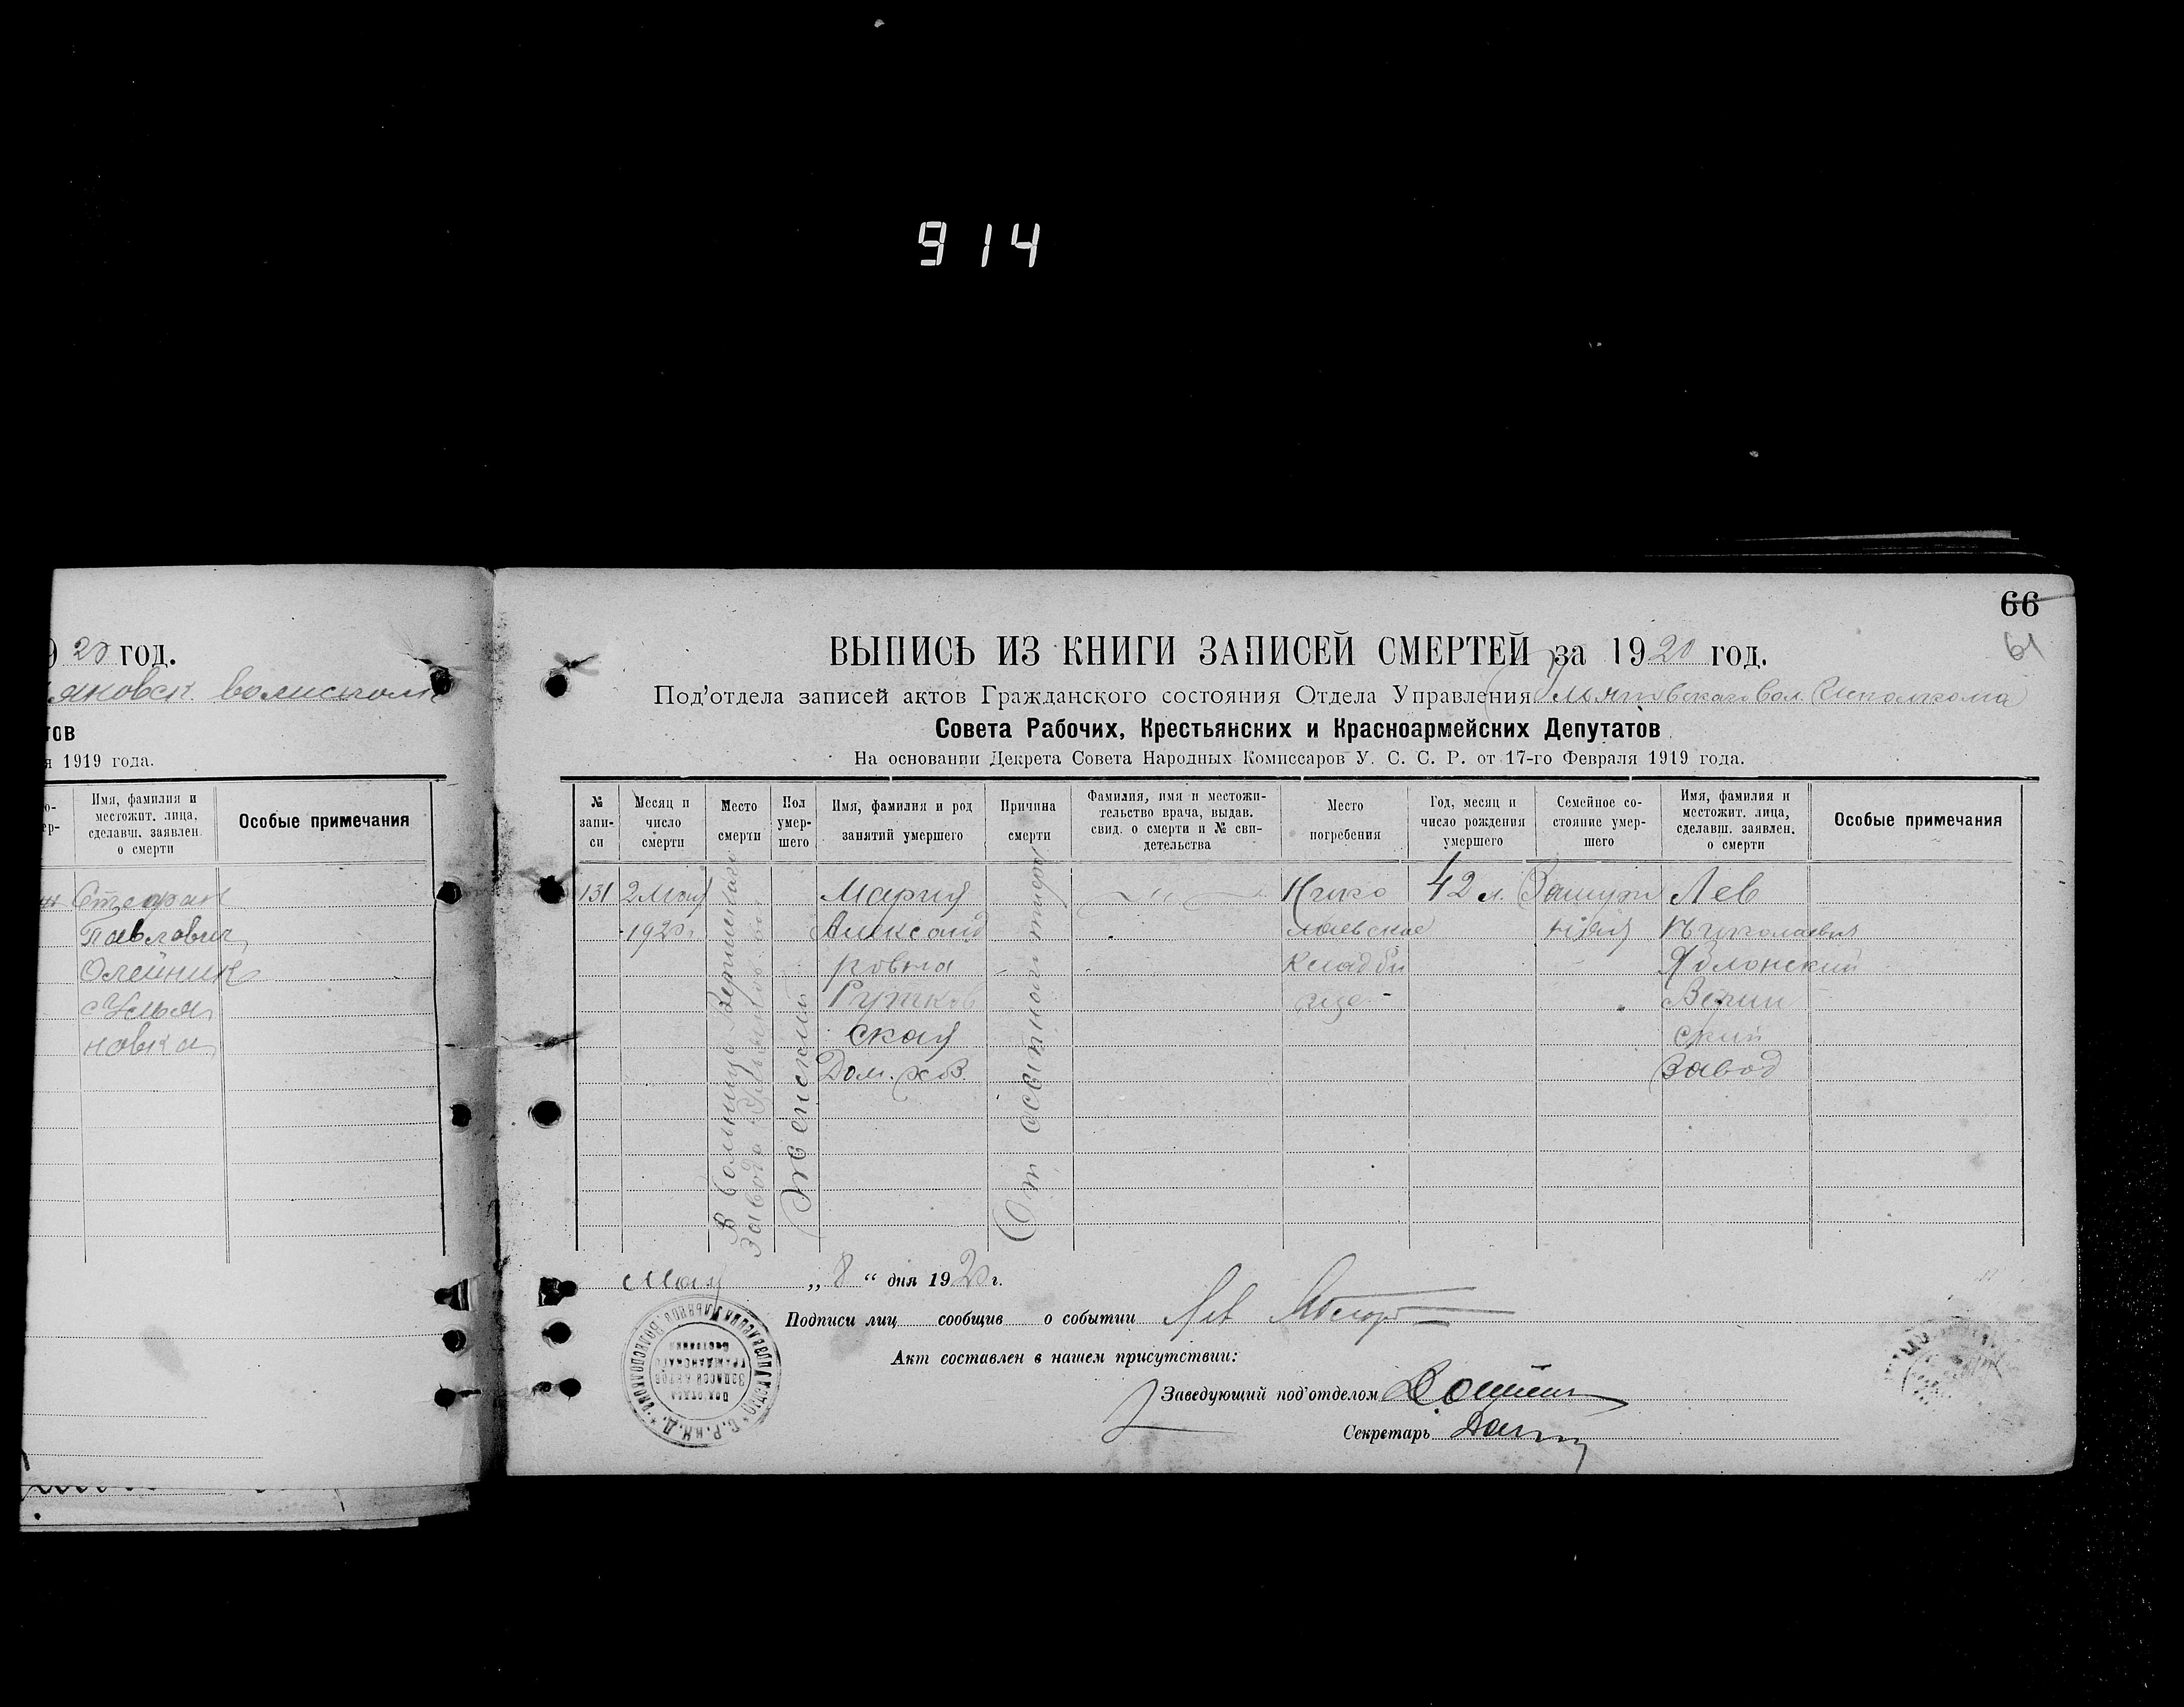 914
20 год.
яновск. волисполк
тов
я 1919 года.
Имя, фамилия и
местожит. лица,
сделавш. заявлен.
о смерти
Особые примечания
Стефан
Павлович
Олейник
с Улья
новка
66
61
ВЫПИСЬ ИЗ КНИГИ ЗАПИСЕЙ СМЕРТЕЙ за 1920 год.
Под'отдела записей актов Гражданского состояния Отдела Управления Ульяновскаго Вол. Исполкома
Совета Рабочих, Крестьянских и Красноармейских Депутатов
На основании Декрета Совета Народных Комиссаров У. С. С. Р. от 17-го Февраля 1919 года.
№
запи-
си
Месяц и
число
смерти
Место
смерти
Пол
умер-
шего
Имя, фамилия и род
занятий умершего
Причина
смерти
Фамилия, имя и местожи-
тельство врача, выдав.
свид. о смерти и № сви-
детельства
Место
погребения
Год, месяц и
число рождения
умершего
Семейное со-
стояние умер-
шего
Имя, фамилия и
местожит. лица,
сделавш. заявлен.
о смерти
Особые примечания
131
2 Мая
1920 г.
В больнице
Завода
Женский
Мария
Александ
ровна
Рутков
ская
Дом. хоз.
От тифа
Нико
лаевское
Кладби
ще
42 л.
Замуж
няя
Лев
Николаевич
Яблонский
Верин
ский
завод
Мая „ 8 “ дня 1920 г.
Подписи лиц сообщив о событии Лев
Акт составлен в нашем присутствии:
Заведующий под'отделом
Секретарь
Под'отдел
Записей Актов
Гражданскаго
Состояния